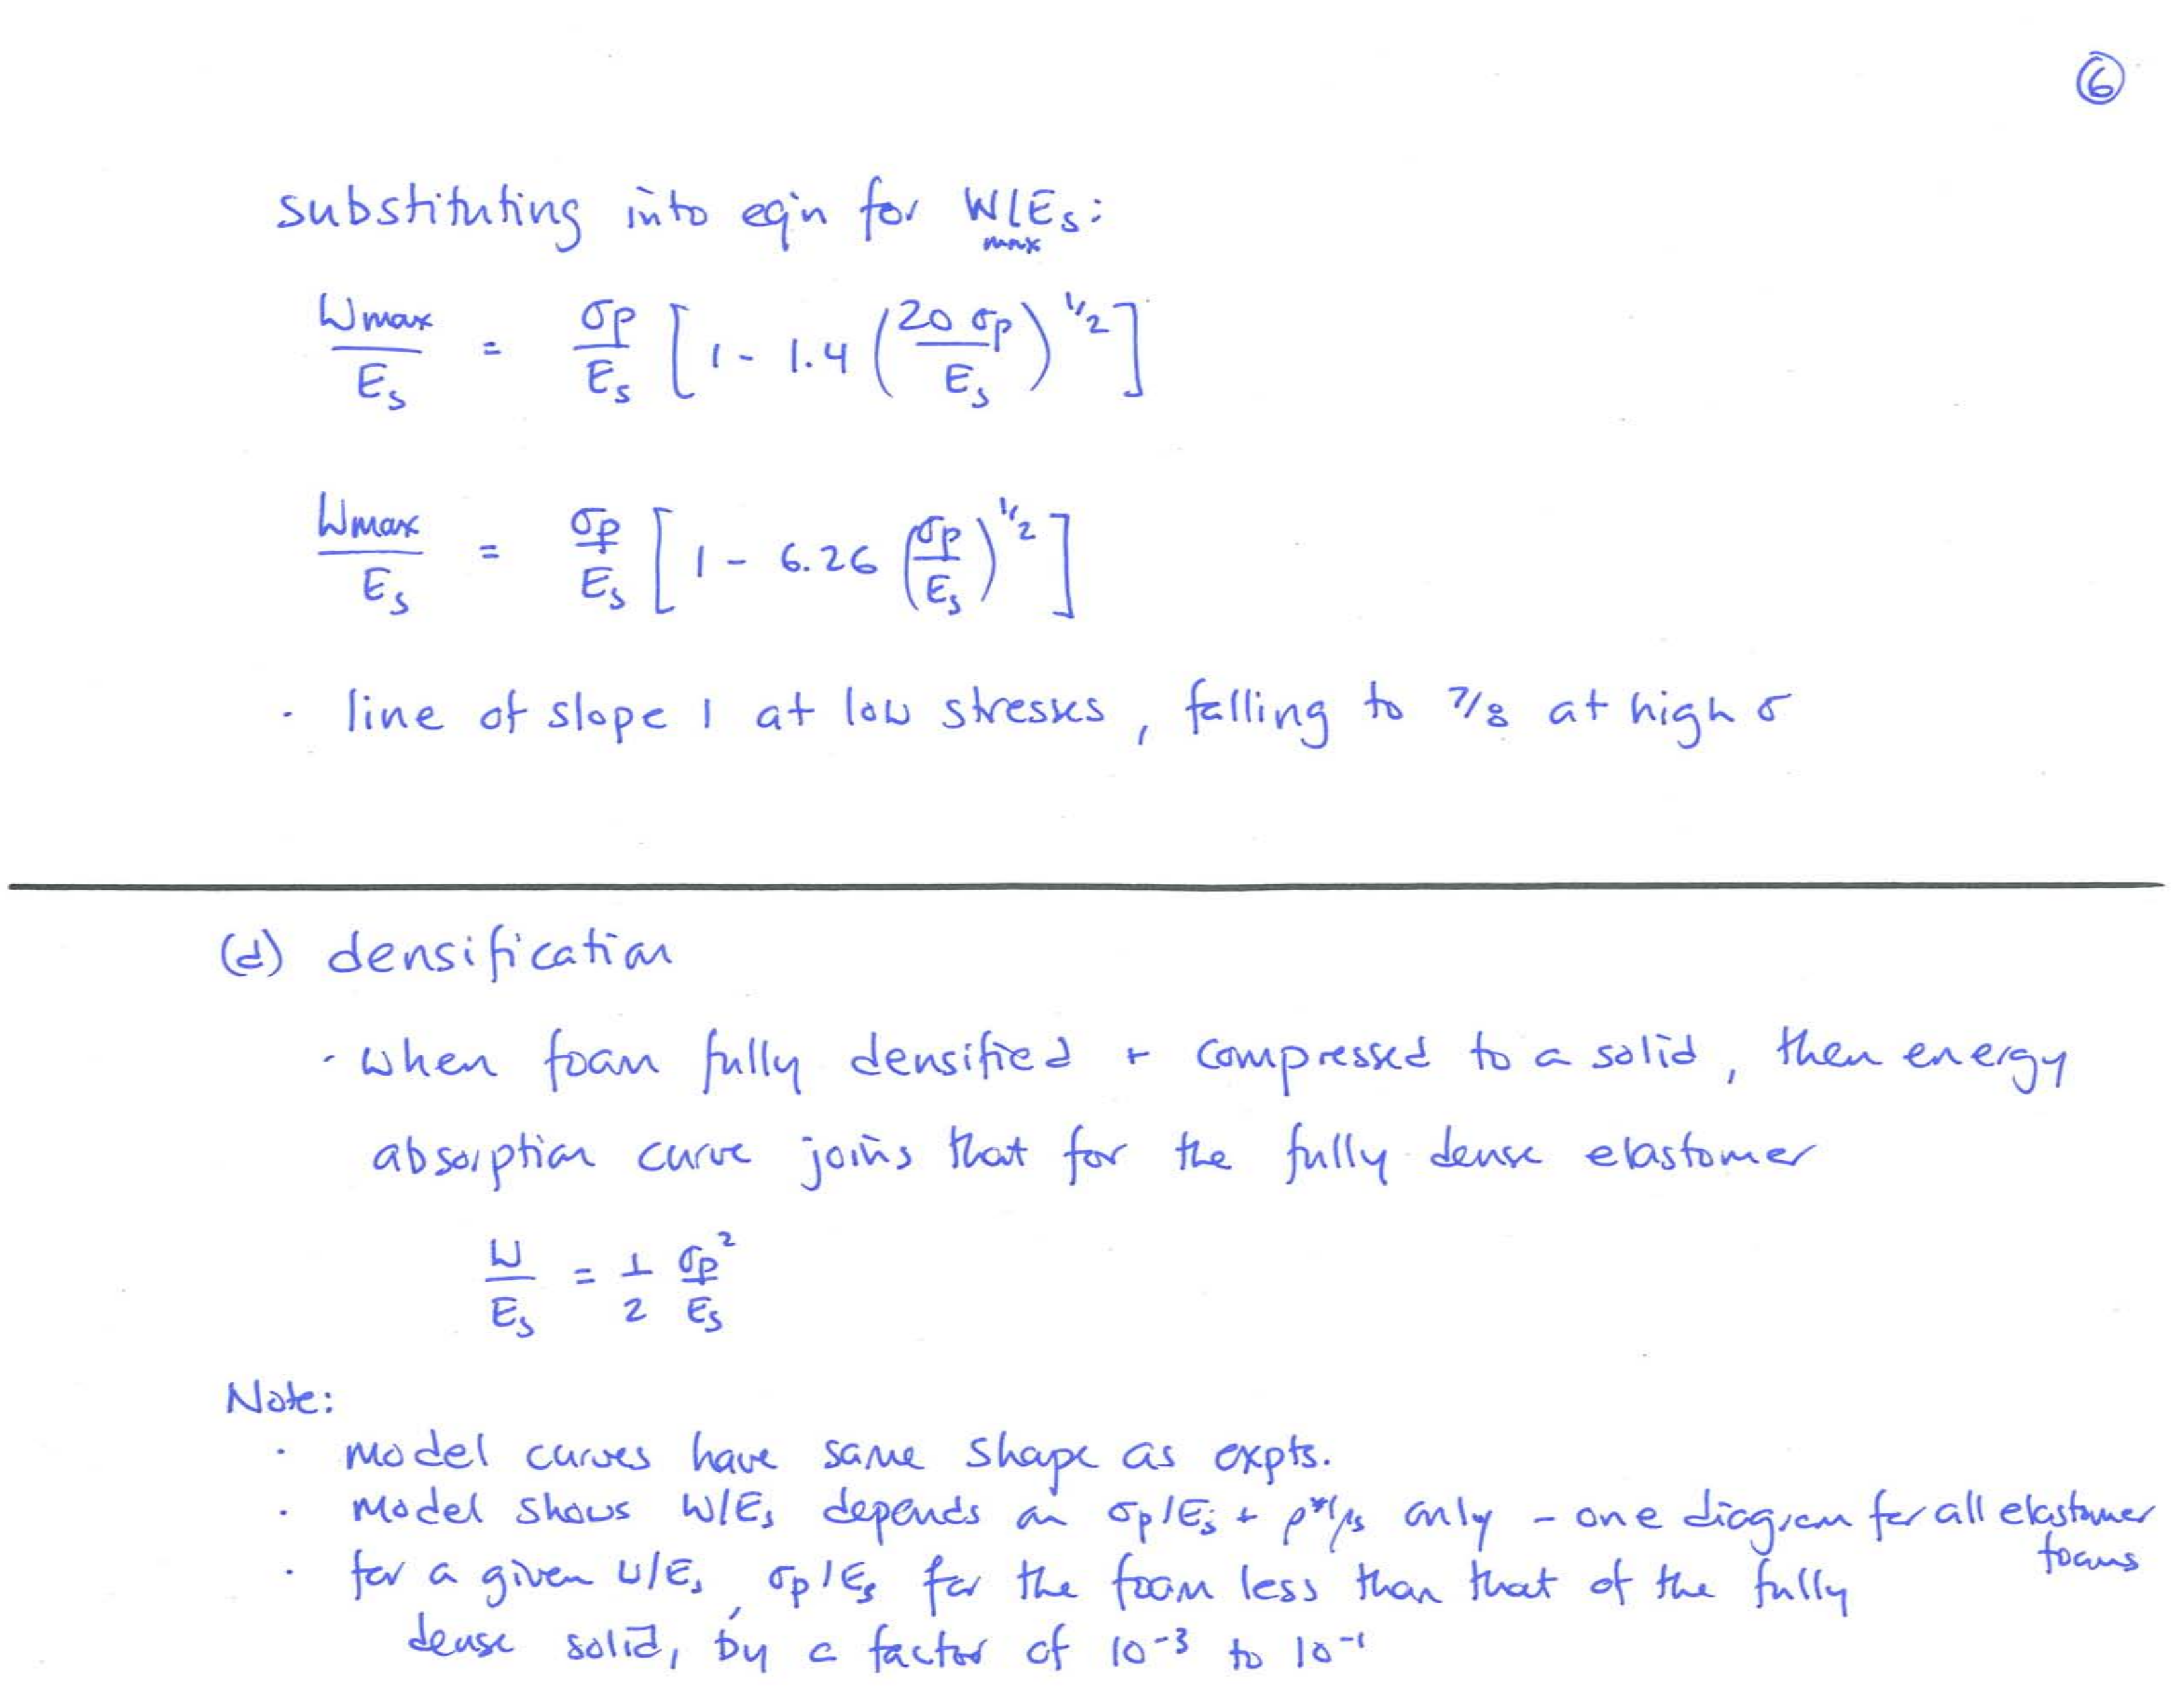 ⑥
substituting into eq'n for W/Es:
max
Wmax/Es = σp/Es [1 - 1.4 (20 σp/Es)^1/2]
Wmax/Es = σp/Es [1 - 6.26 (σp/Es)^1/2]
· line of slope 1 at low stresses, falling to 7/8 at high σ
(d) densification
· when foam fully densified + compressed to a solid, then energy
absorption curve joins that for the fully dense elastomer
W/Es = 1/2 σp²/Es
Note:
· model curves have same shape as expts.
· model shows W/Es depends on σp/Es + ρ*/ρs only - one diagram for all elastomer
foams
· for a given W/Es, σp/Es for the foam less than that of the fully
dense solid, by a factor of 10⁻³ to 10⁻¹